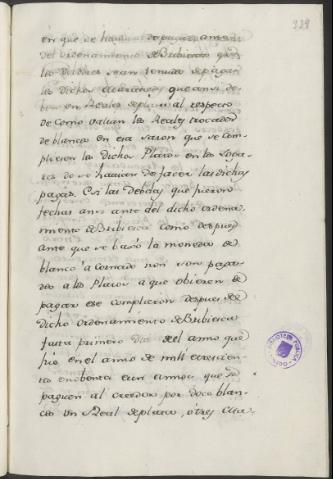 328
en que se havian de pagar antes
del ordenamiento de Bribiesca que
los deudores sean tenudos de pagar
los dichos maravedises que ansi de
ben en Reales de plata al respecto
de como valian los Reales trocados
de blancos en esa sazon que se com
plieron los dichos Plazos en los Loga
res do se havian de facer las dichas
pagas. Et las debdas que fueron
fechas ansi ante del dicho ordena
miento de Bribiesca como despues
ante que se baxó la moneda de
blanco a cornado non son paga
das a los Plazos a que obieren de
pagar ese complieron despues del
dicho ordenamiento de Bribiesca
fasta primero dia del anno que
fue en el anno de mill e trescien
tos e nobenta e un annos que se
paguen al creedor por doce blan
cos un Real de plata, o tres cua